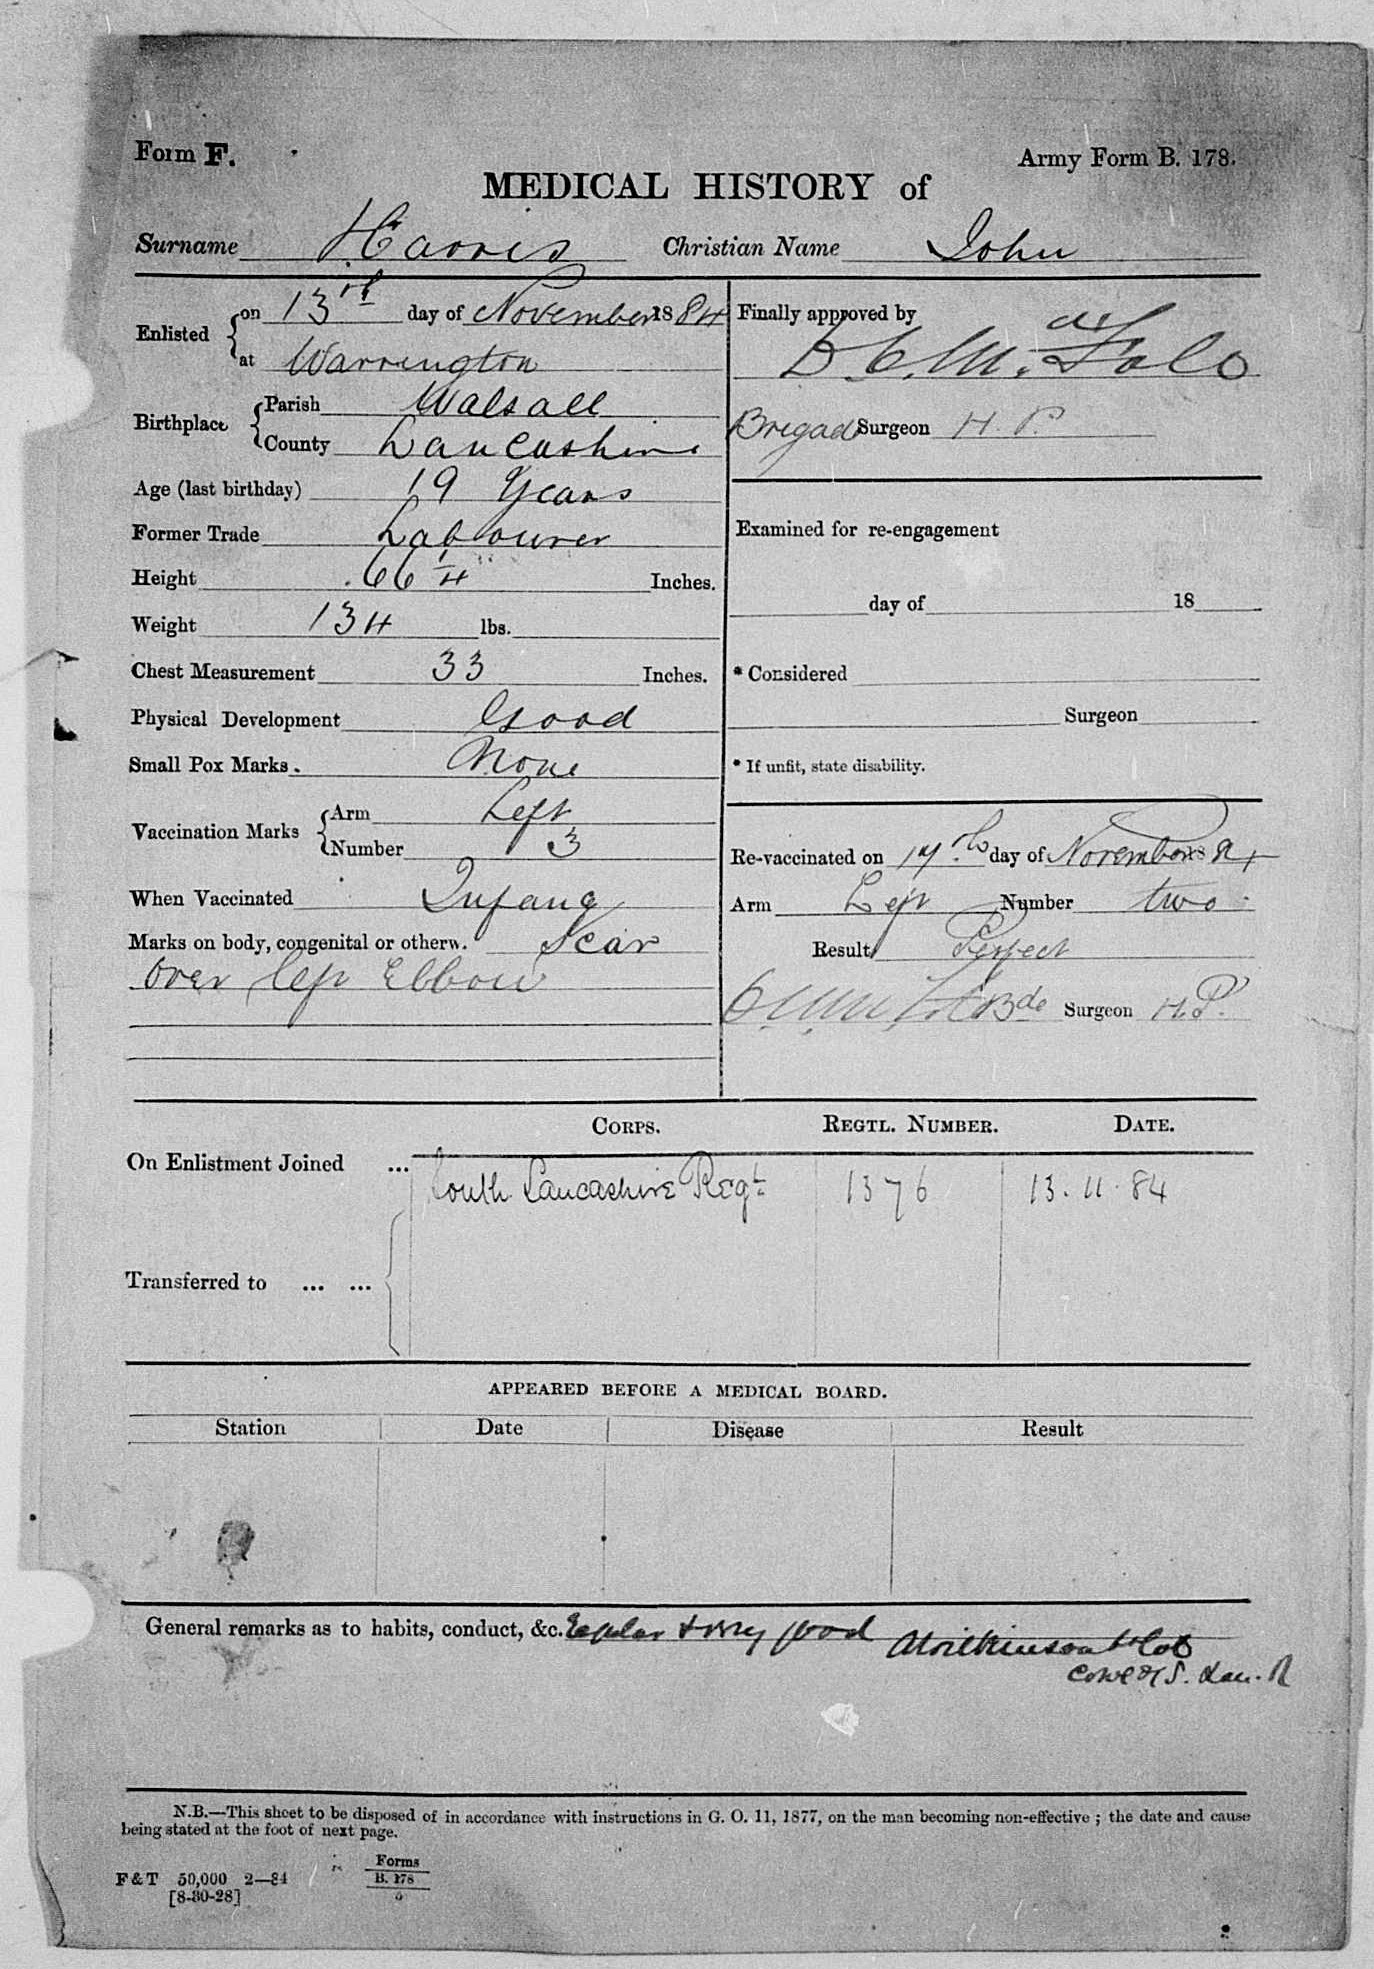 Form F.
Army Form B. 178.
MEDICAL HISTORY of
Surname Harris Christian Name John
Enlisted on 13th day of November 1884
at Warrington
Birthplace Parish Walsall
County Lancashire
Age (last birthday) 19 Years
Former Trade Labourer
Height 66 1/4 Inches.
Weight 134 lbs.
Chest Measurement 33 Inches.
Physical Development Good
Small Pox Marks. None
Vaccination Marks Arm Left
Number 3
When Vaccinated Infancy
Marks on body, congenital or otherw. Scar
over left Elbow
Finally approved by
Brigade Surgeon H. P.
Examined for re-engagement
day of 18
* Considered
Surgeon
* If unfit, state disability.
Re-vaccinated on 17th day of November 1884
Arm Left Number two
Result Perfect
Bde Surgeon H.P.
CORPS. REGTL. NUMBER. DATE.
On Enlistment Joined ... South Lancashire Regt 1376 13.11.84
Transferred to ... ...
APPEARED BEFORE A MEDICAL BOARD.
Station Date Disease Result
General remarks as to habits, conduct, &c. Regular & very good A Wilkinson Lt Col
S. Lan. R
N.B.—This sheet to be disposed of in accordance with instructions in G. O. 11, 1877, on the man becoming non-effective ; the date and cause
being stated at the foot of next page.
F & T 50,000 2—84
[8-80-28]
Forms
B. 178